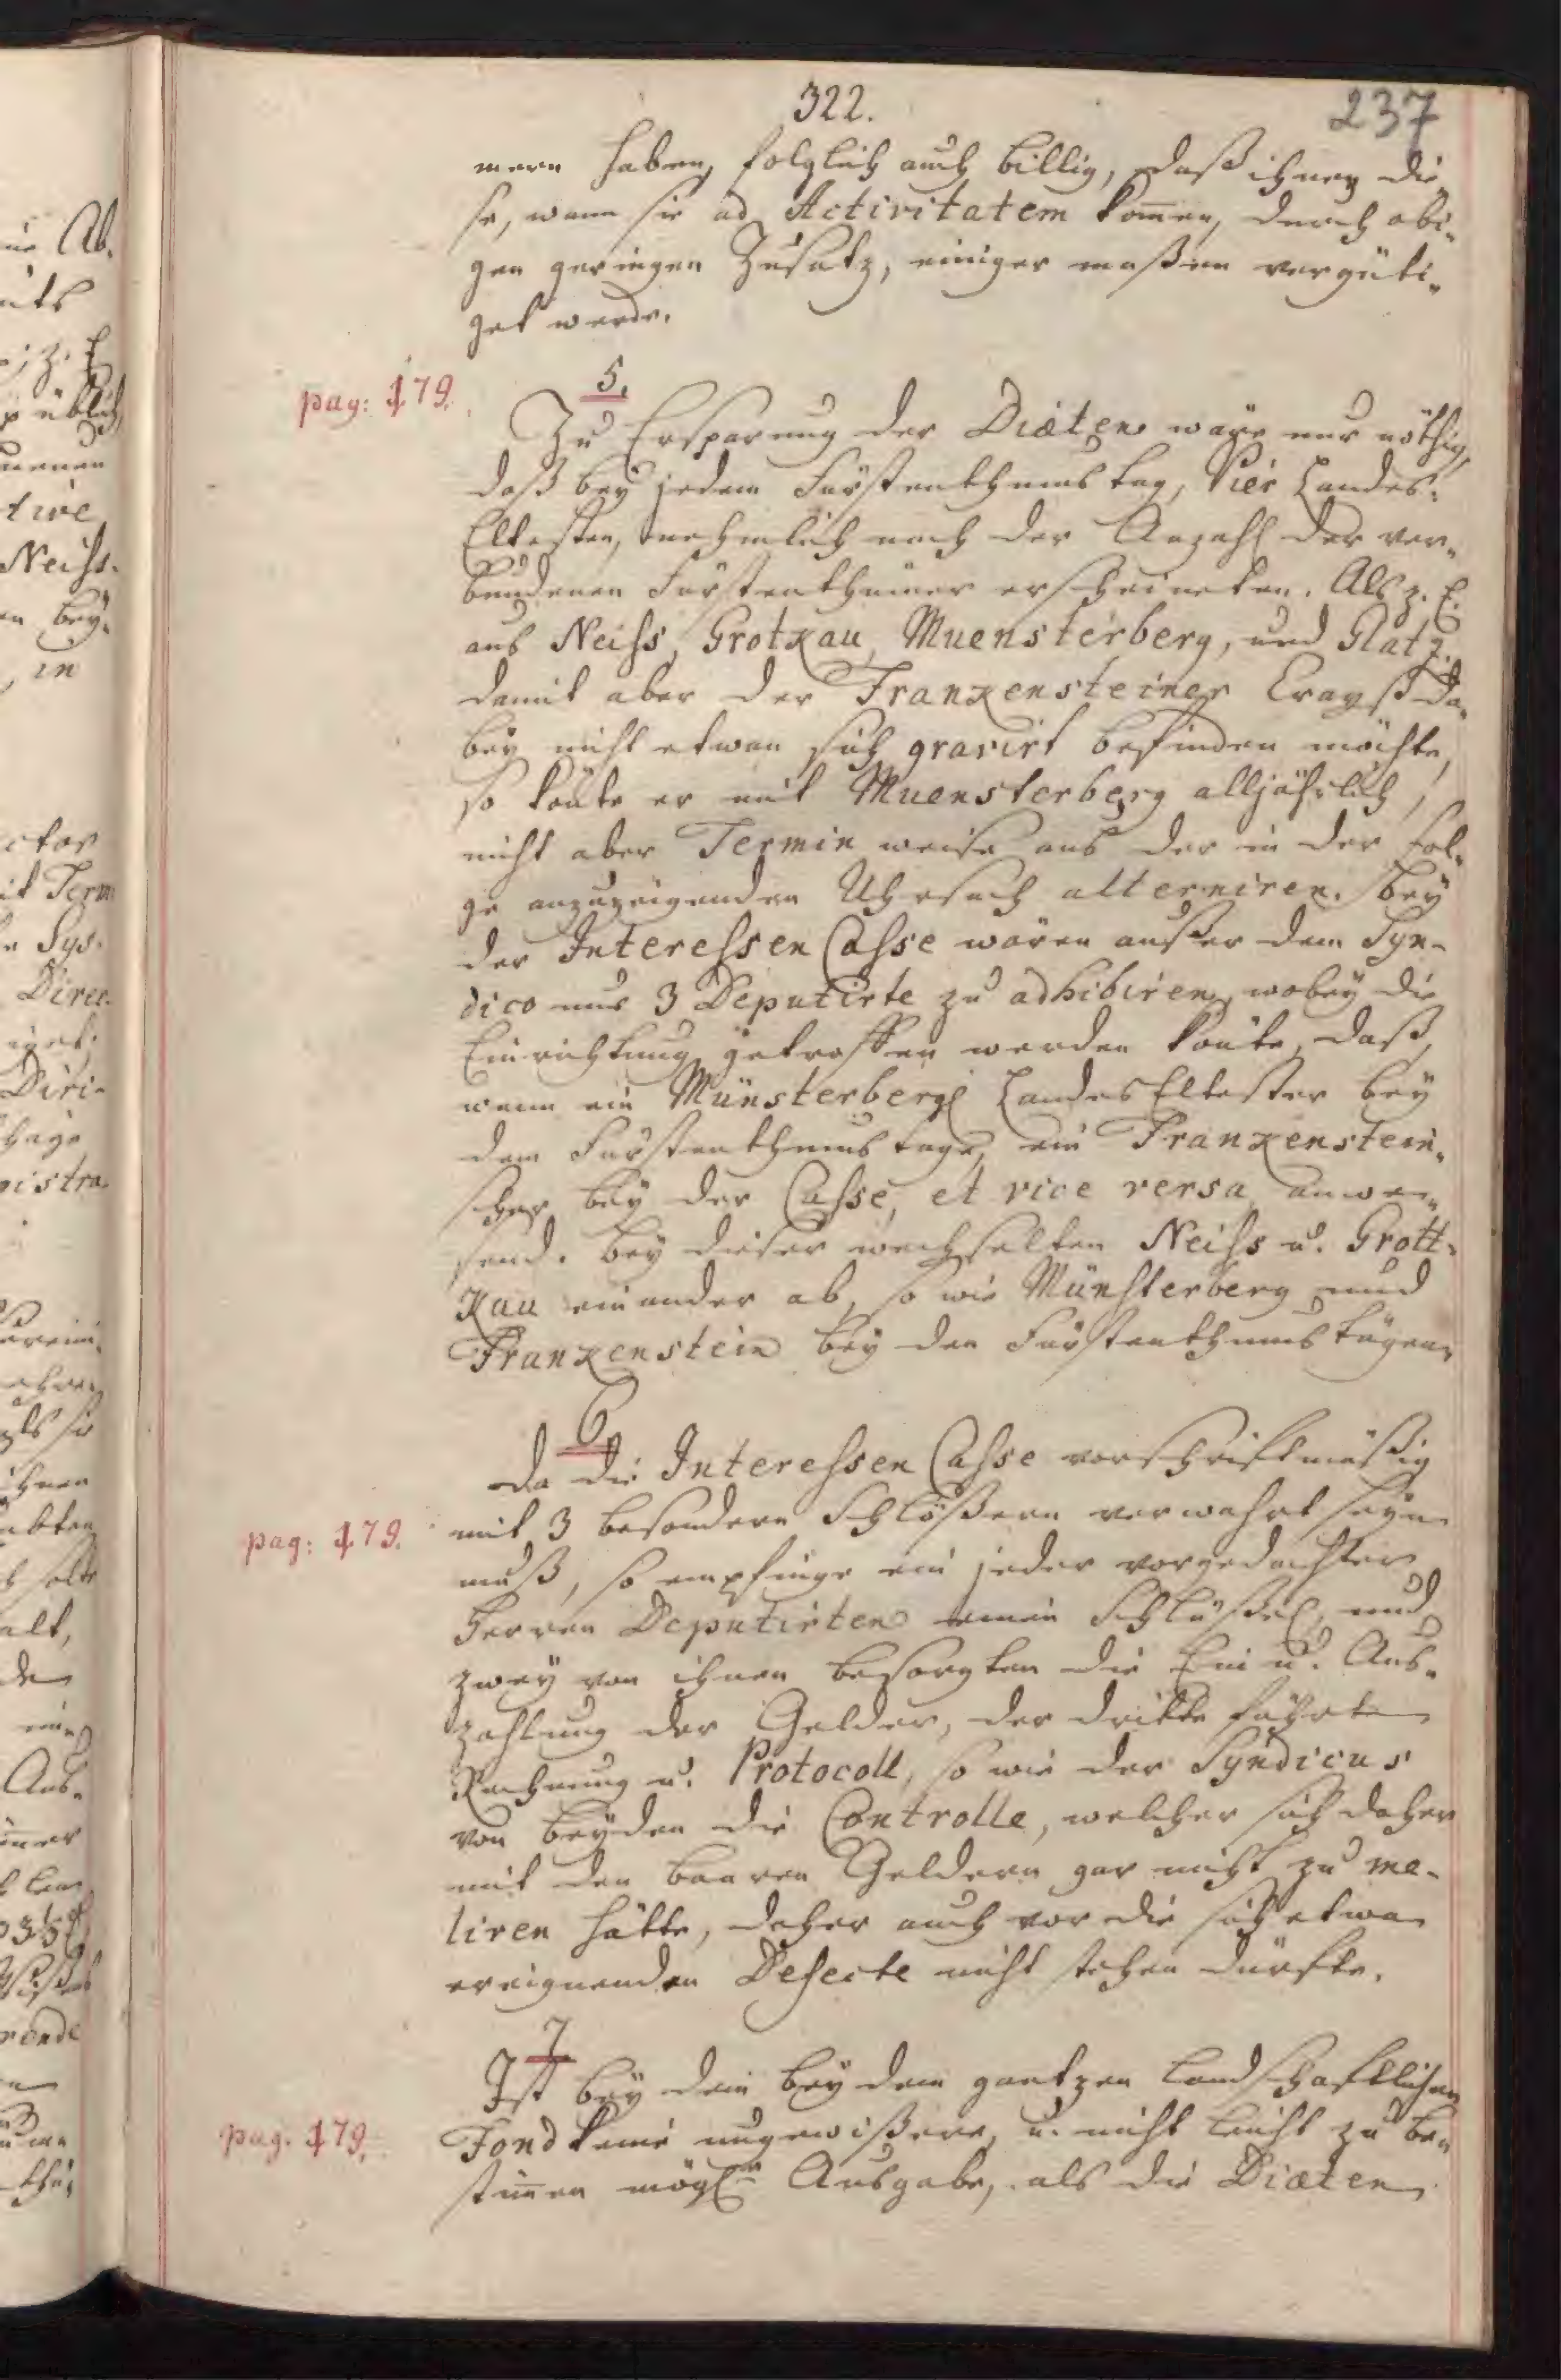 322.
237
mern haben, folglich auch billig, daß ihnen die„
se, wann sie ad Activitatem kom̅en, durch obi„
gen geringen Zusatz, einiger maßen vergüti„
get werde.
pag: 179.
5.
Zu Ersparung der Diæten wäre nur nöthig,
daß bey jedem Fürstenthums tag, Vier Landes-
Eltesten, nehmlich nach der Anzahl der ver„
bundenen Fürstenthümer erscheineten. Als z. E.
aus Neiss, Grotkau, Muensterberg, und Glatz.
damit aber der Frankensteiner Crayß da„
bey nicht etwan sich gravirt befinden möchte,
so kön̅te er mit Muensterberg alljährlich,
nicht aber Termin weise aus der in der fol„
ge anzuzeigenden Uhrsach alterniren. bey
der Interessen Casse wären außer dem Syn-
dico nur 3 Deputirte zu adhibiren, wobey die
Einrichtung getroffen werden kön̅te, daß,
wenn ein Münsterbergl Landes Eltester bey
dem Fürstenthums tage, ein Frankenstein„
scher bey der Casse, et vice versa anwe„
send. bey dieser wechselten Neiss u. Grott-
kau einander ab, so wie Münsterberg und
Frankenstein bey den Fürstenthums tägen.
6.
Da die Interessen Casse vorschriftmäßig
pag: 179.
mit 3 besondern Schlößern verwahrt seyn
muß, so empfinge ein jeder vorgedachter
Herren Deputirten einen Schlüßel, und
zwey von ihnen besorgten die Ein u. Aus„
zahlung der Gelder, der dritte führte
Rechnung u. Protocoll, so wie der Syndicus
von beyden die Controlle, welcher sich daher
mit den baaren Geldern gar nicht zu me-
liren hätte, daher auch vor die sich etwa
ereignenden Defecte nicht stehen dürfte.
7.
Ist bey dem bey dem gantzen Landschafftlichen
pag. 179.
Fond keine ungewißere, u. nicht leicht zu be„
stim̅en mögl. Ausgabe, als die Diæten